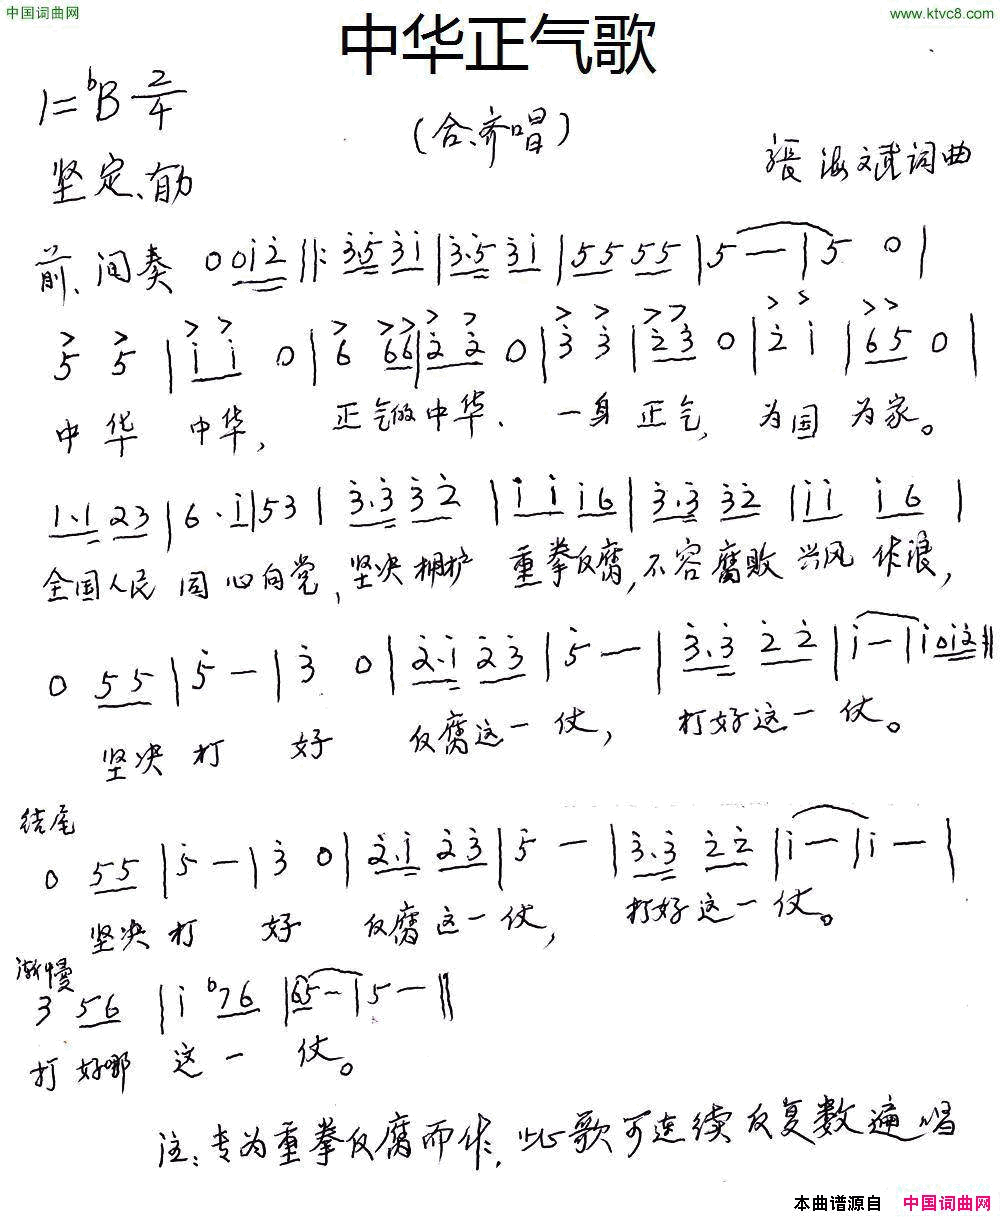 中国词曲网 www.ktvc8.com
中华正气歌
1=bB 2/4
(合、齐唱)
坚定、有力
張海斌词曲
前、间奏 0 0 0 i 2 ||: 3. 5 3 i | 3. 5 3 i | 5 5 5 5 | 5 — | 5 0 |
5 5 | i i 0 | 6 6 6 | 2 2 0 | 3 3 | 2 3 0 | 2 i | 6 5 0 |
中华 中华, 正气的中华、 一身正气, 为国为家。
1. 1 2 3 | 6 . i | 5 3 | 3. 3 3 2 | i i i 6 | 3. 3 3 2 | i i i 6 |
全国人民 同心向党, 坚决拥护 重拳反腐, 不容腐败 兴风 作浪,
0 5 5 | 5 — | 3 0 | 2. i 2 3 | 5 — | 3. 3 2 2 | i — | i 0 i 2 ||
坚决打 好 反腐这一仗, 打好这一仗。
结尾
0 5 5 | 5 — | 3 0 | 2. i 2 3 | 5 — | 3. 3 2 2 | i — | i — |
坚决打 好 反腐这一仗, 打好这一仗。
渐慢
3 5 6 | i b7 6 | 6 5 — | 5 — ||
打好哪 这一 仗。
注:专为重拳反腐而作,此歌可连续反复数遍唱
本曲谱源自 中国词曲网